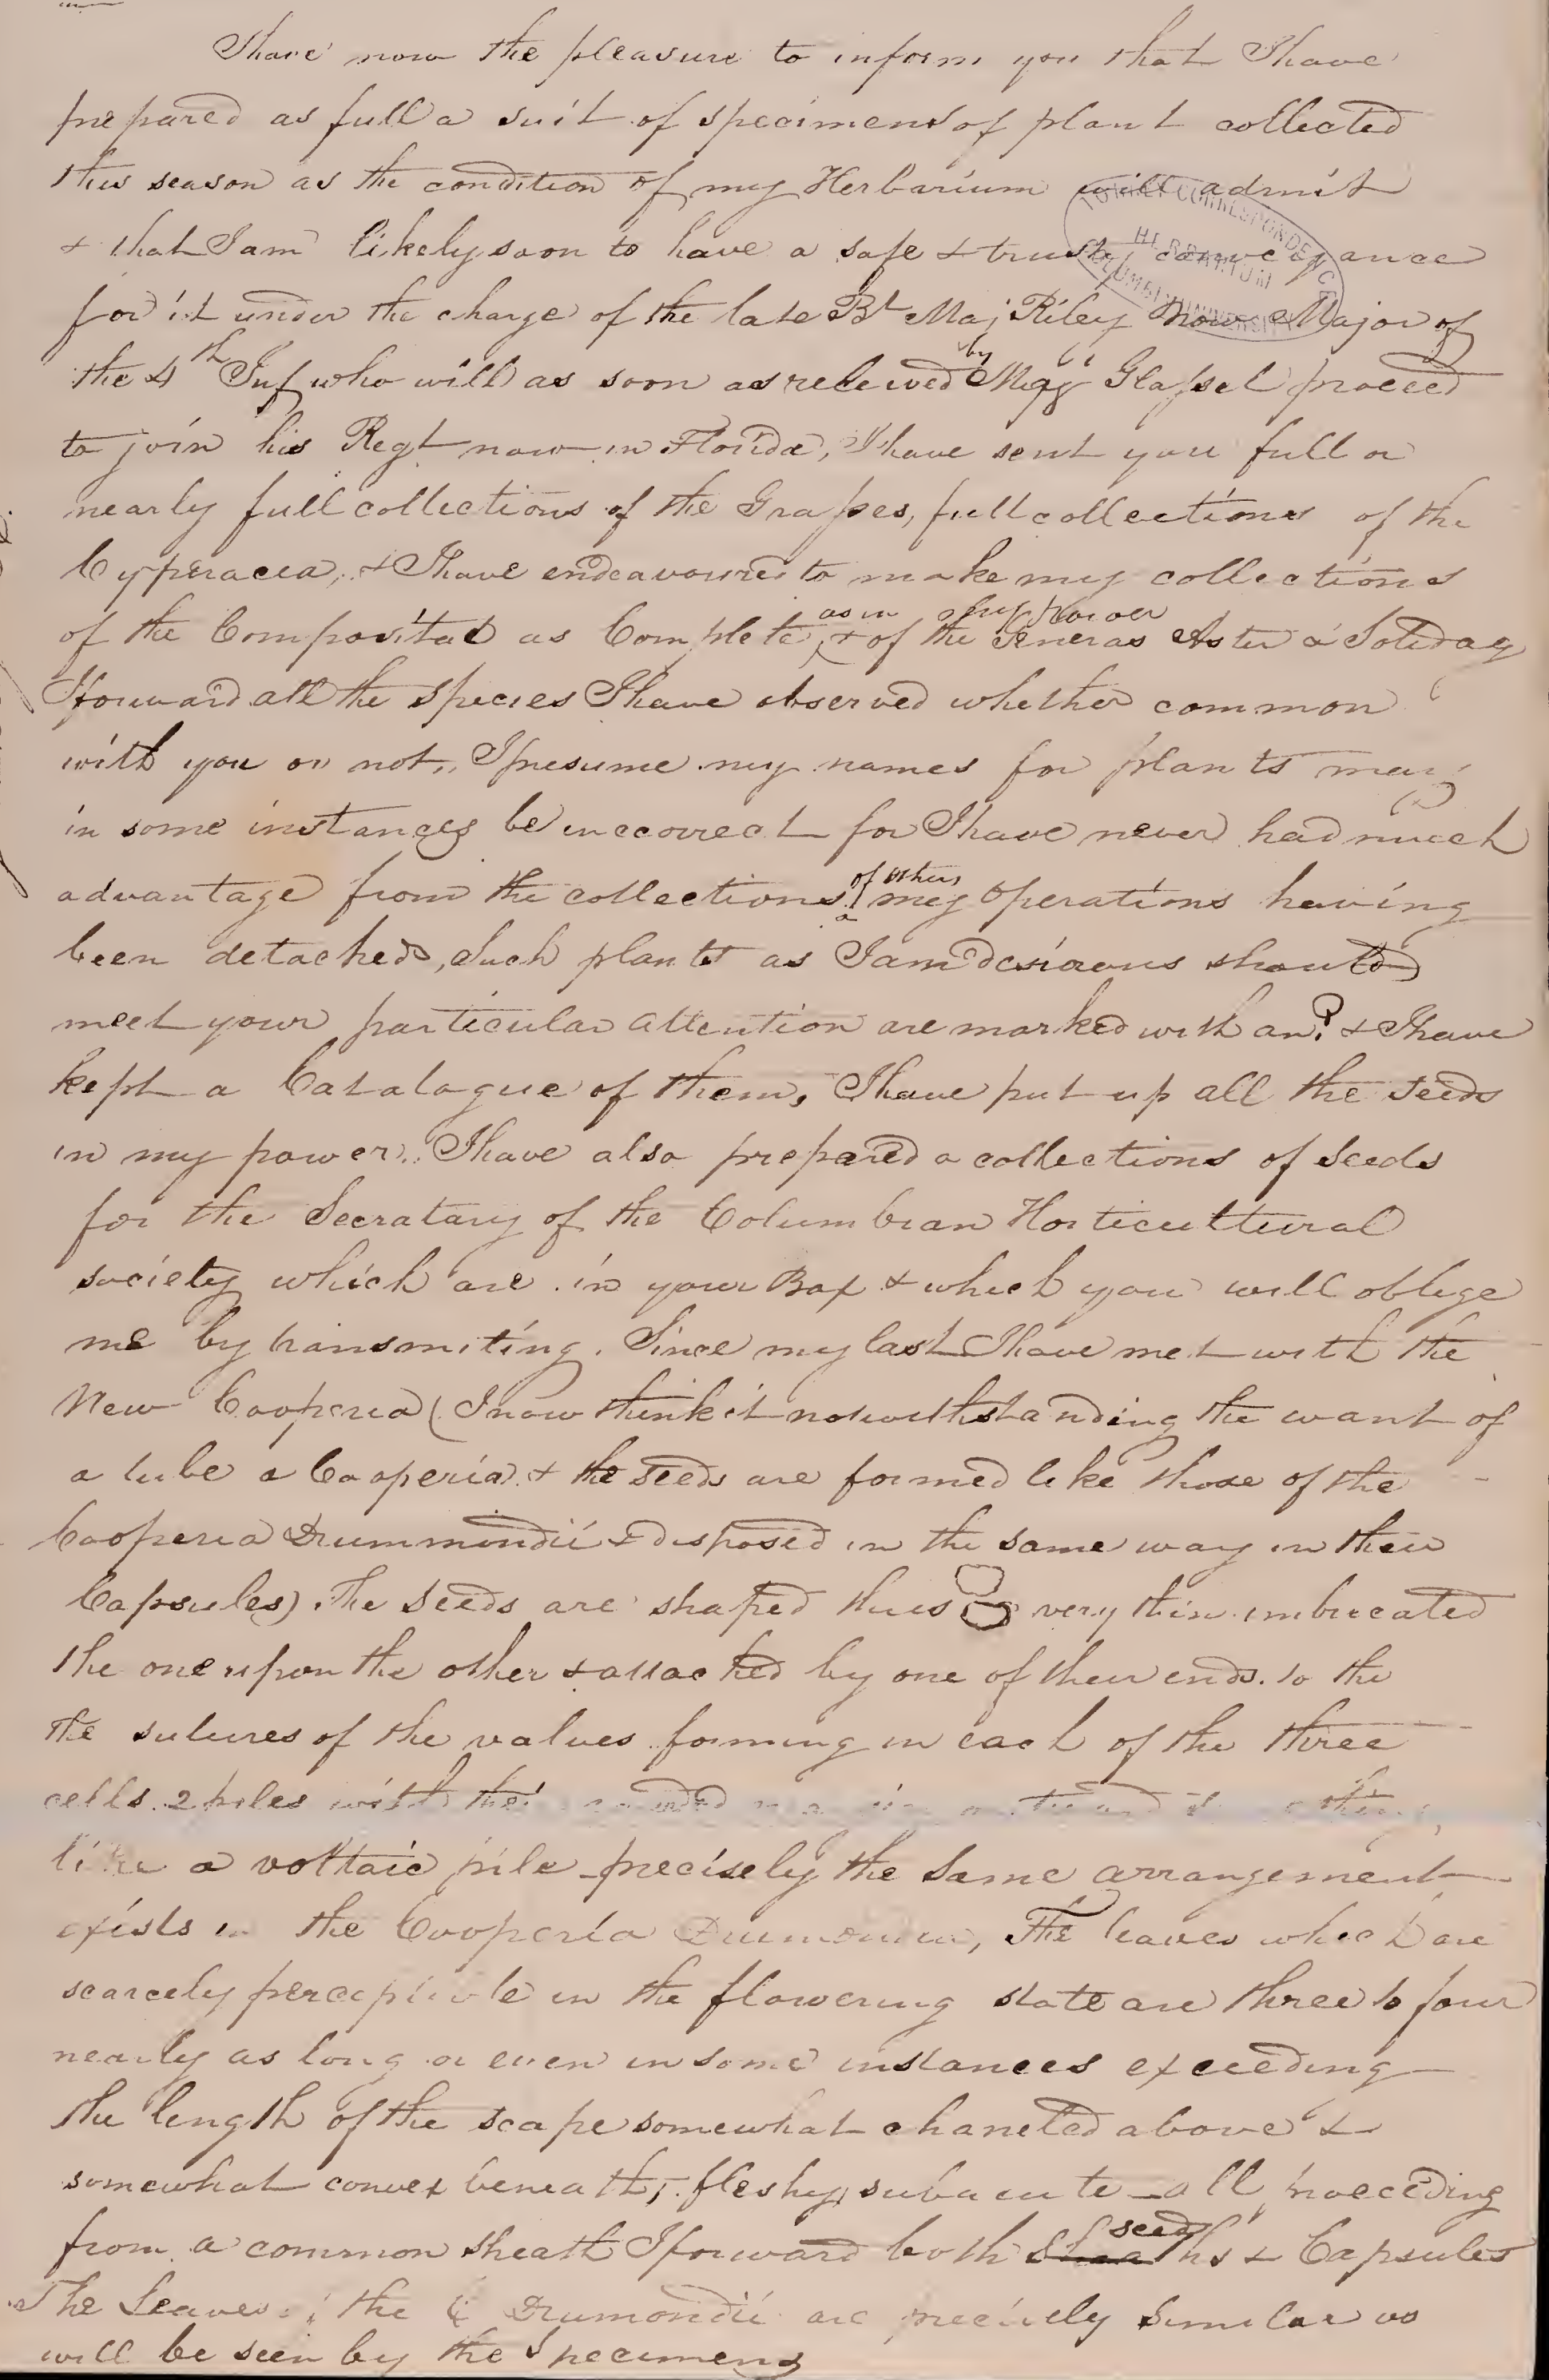 I have now the pleasure to inform you that I have
prepared as full a suit of specimens of plant collected
this season as the condition of my Herbarium will admit
TORREY CORRESPONDENCE
HERBARIUM
COLUMBIA UNIVERSITY
& that I am likely soon to have a safe & trusty conveyance
for it under the charge of the late Bt Maj Riley now Major of
the 4th Inf who will as soon as releived by Maj Glassel proceed
to join his Regt now in Florida, I have sent you full or
nearly full collections of the Grasses, full collections of the
Cyperacea, & I have endeavoured to make my collections
of the Compositae as Complete as in my power & of the Generas Aster & Solidago
I forward all the species I have observed whether common
with you or not, I presume my names for plants may
in some instances be inccorrect for I have never had much
advantage from the collections of others my operations having
been detached, Such plants as I am desirous should
meet your particular attention are marked with an ? & I have
kept a Catalogue of them, I have put up all the seeds
in my power. I have also prepared a collections of seeds
for the Secratary of the Columbian Horticultural
society which are in your Box & which you will oblige
me by transmiting. Since my last I have met with the
New Cooperia (I now think it notwithstanding the want of
a tube a Cooperia & the seeds are formed like those of the
Cooperia Drummondii & disposed in the same way in their
Capsules). The seeds are shaped thus very thin imbricated
the one upon the other & attached by one of their ends to the
the sutures of the valves forming in each of the three
cells 2 piles with their
like a voltaic pile precisely the same arrangement
exists in the Cooperia Drumondii, The leaves which are
scarcely perceptible in the flowering state are three to four
nearly as long or even in some instances exceeding
the length of the scape somewhat chaneled above &
somewhat convex beneath, fleshy, subacute all proceeding
from a common sheath I forward both seeds & Capsules
The leaves of the C Drumondii are precisely similar as
will be seen by the Specimens